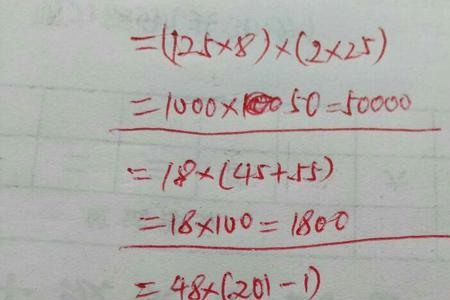 =(125×8)×(2×25)
=1000×50=50000
=18×(45+55)
=18×100=1800
=48×(201-1)